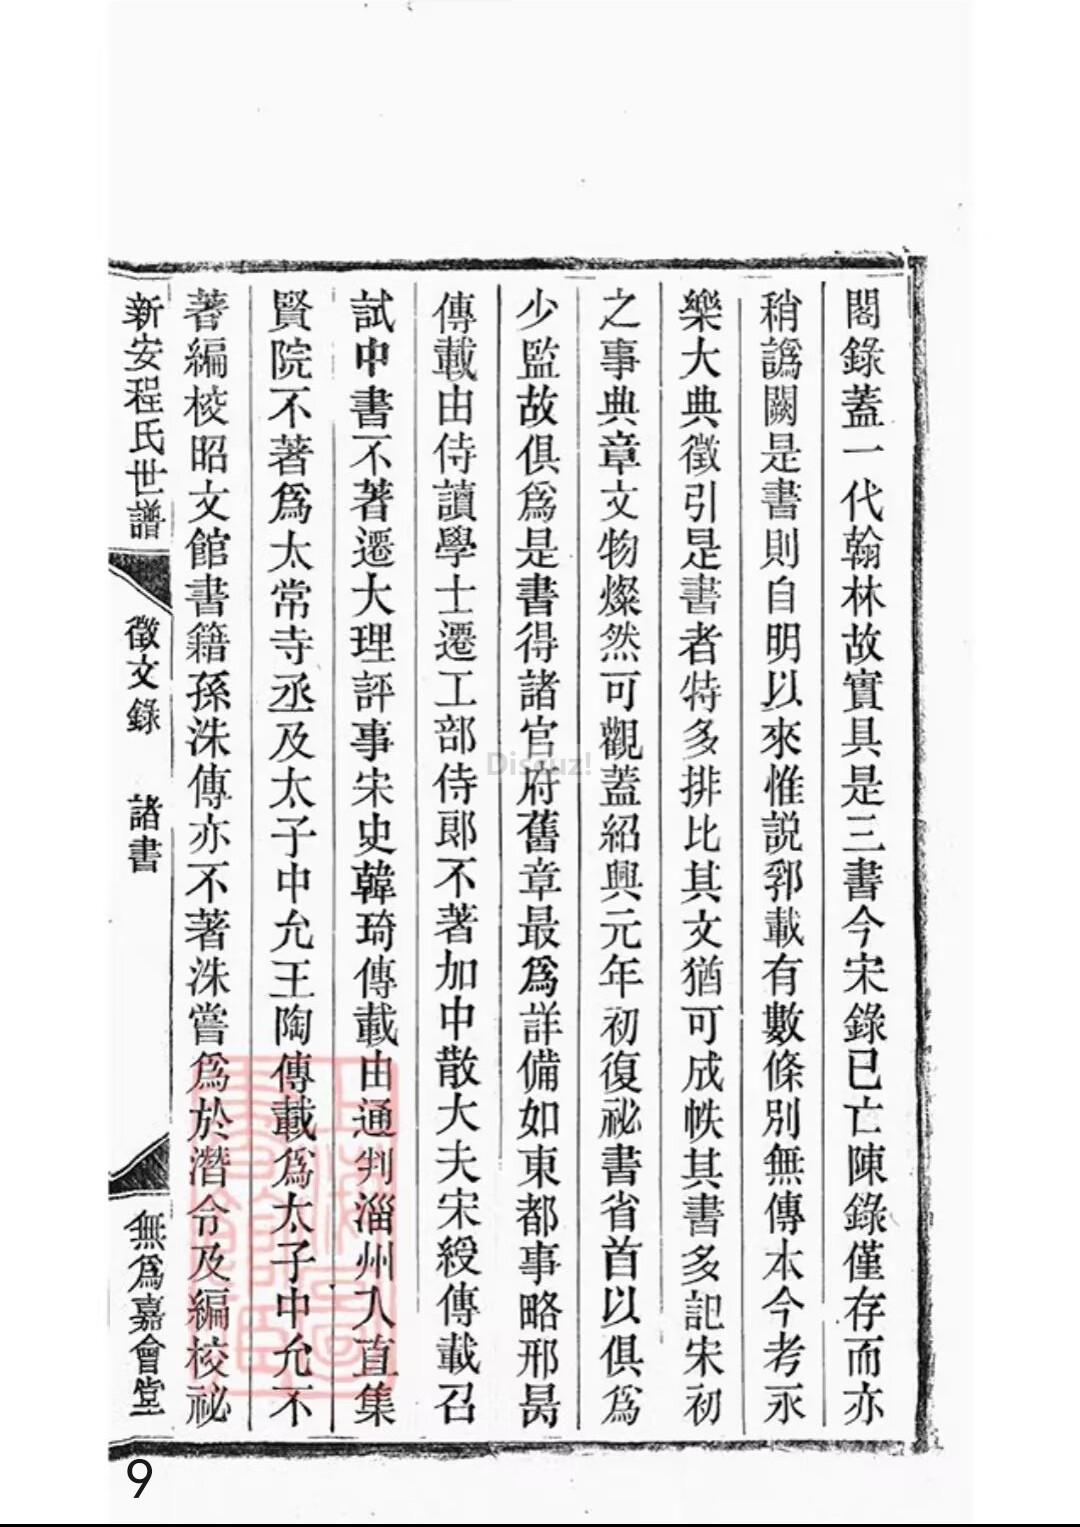 閣錄蓋一代翰林故實具是三書今宋錄已亡陳錄僅存而亦
稍譌闕是書則自明以來惟説郛載有數條別無傳本今考永
樂大典徵引是書者特多排比其文猶可成帙其書多記宋初
之事典章文物燦然可觀蓋紹興元年初復祕書省首以俱爲
少監故俱爲是書得諸官府舊章最爲詳備如東都事略邢昺
傳載由侍讀學士遷工部侍郎不著加中散大夫宋綬傳載召
試中書不著遷大理評事宋史韓琦傳載由通判淄州入直集
賢院不著爲太常寺丞及太子中允王陶傳載爲太子中允不
著編校昭文館書籍孫洙傳亦不著洙嘗爲於潛令及編校祕
新安程氏世譜 徵文錄 諸書 無爲嘉會堂
Discuz!
9